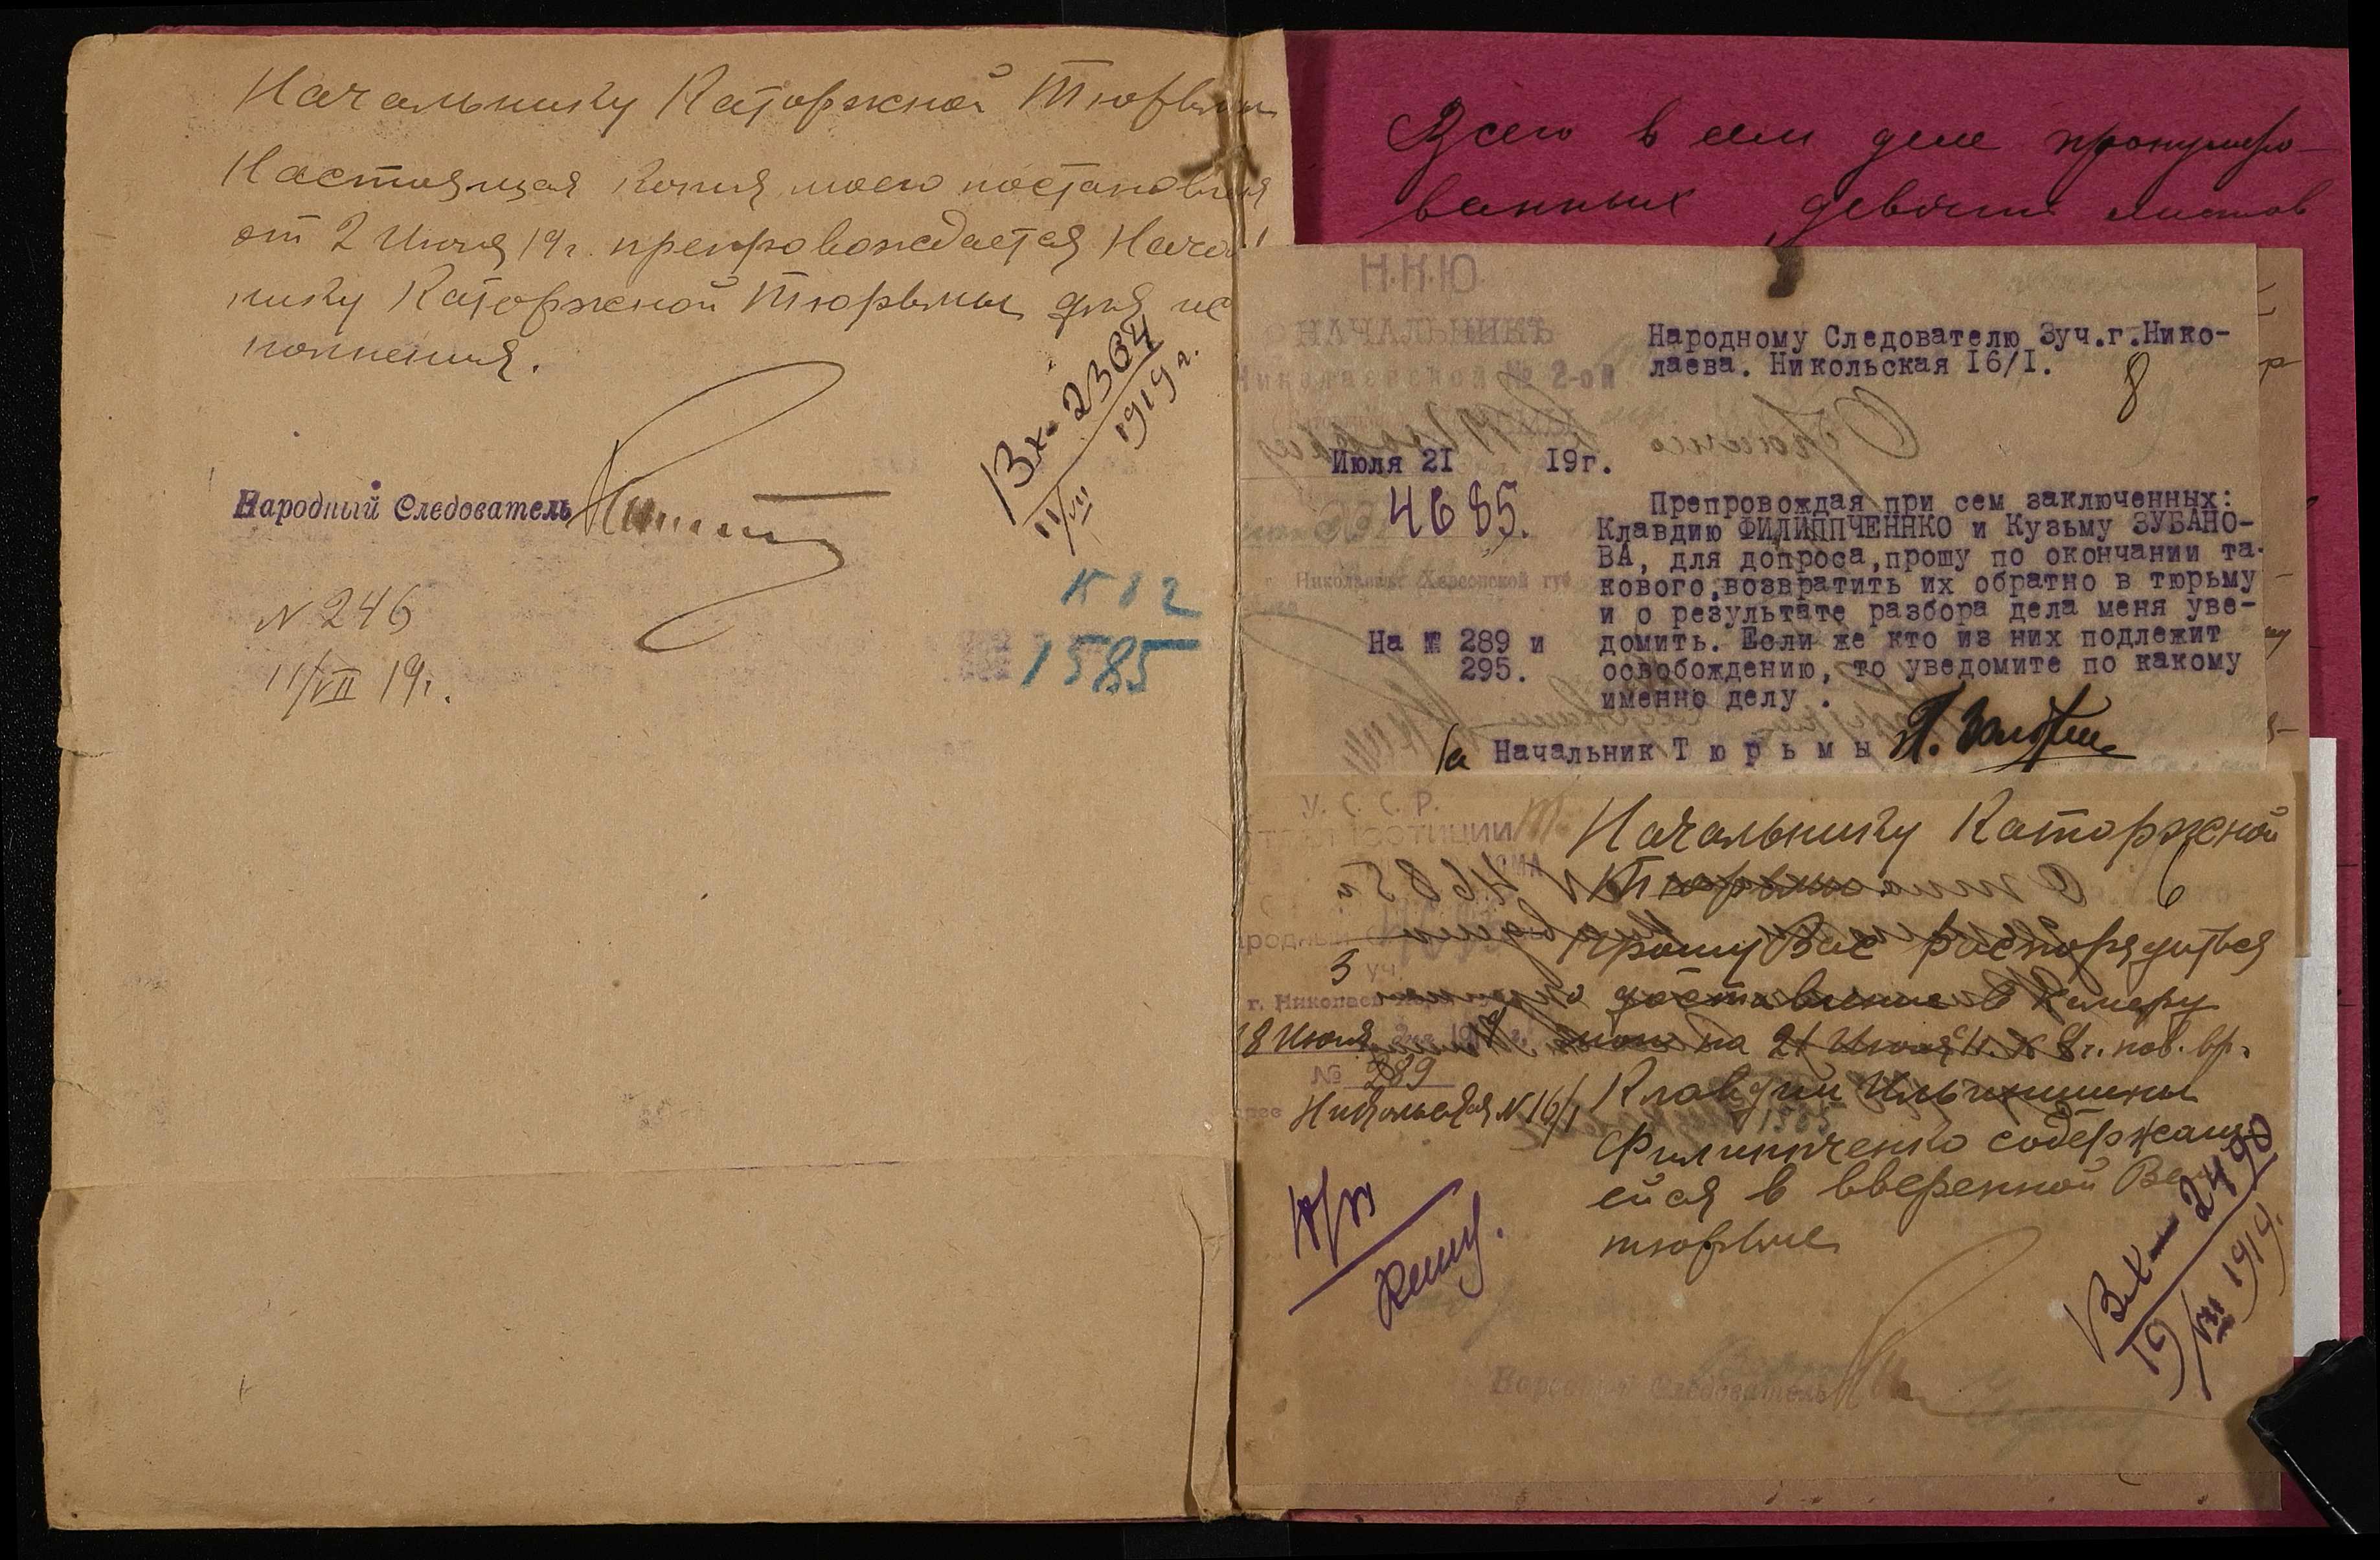 Начальнику Каторжной Тюрьмы
Настоящая копия моего постановления
от 2 Июля 19г. препровождается Началь
нику Каторжной Тюрьмы для ис
полнения.
Вх. 2364
11/VII 1919 г.
Народный Следователь
N 246
11/VII 19г.
К 12
1585
Всего в сем деле пронумеро-
ванных девять листов
Н.К.Ю.
НАЧАЛЬНИКЪ
Николаевской № 2-ой
Народному Следователю 3уч.г.Нико-
лаева. Никольская I6/I.
8
Июля 2I 19г.
4685.
Николаевъ Херсонской губ
На № 289 и
295.
Препровождая при сем заключенных:
Клавдию ФИЛИППЧЕННКО и Кузьму ЗУБАНО-
ВА, для допроса,прошу по окончании та-
кового,возвратить их обратно в тюрьму
и о результате разбора дела меня уве-
домить. Если же кто из них подлежит
освобождению, то уведомите по какому
именно делу .
За Начальник Т ю р ь м ы
У. С. С. Р.
ЮСТИЦИИ
Начальнику Каторжной
Тюрьмы
6
3 уч.
г. Николаев
18 Июля
№ 289
Никольская N 16/1
Прошу Вас распорядиться
о доставлении в камеру
мою на 21 Июля с/г. к 8 г. нов. вр.
Клавдии Ильинишны
Филипченко содержащ-
ейся в вверенной Вам
тюрьме
Вх 2490
19/VII 1919.
Народный Следователь